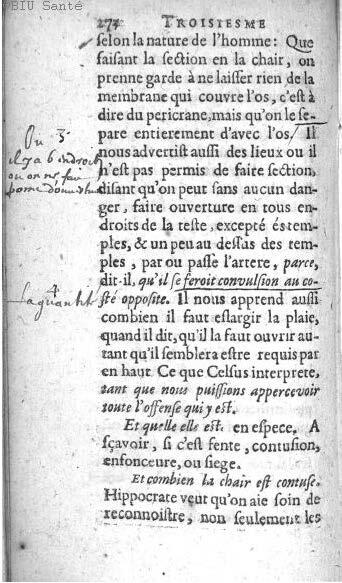 ©BIU Santé
274 TROISIESME
selon la nature de l'homme: Que
faisant la section en la chair, on
prenne garde à ne laisser rien de la
membrane qui couvre l'os, c'est à
dire du pericrane, mais qu'on le se-
pare entierement d'avec l'os. Il
nous advertist aussi des lieux ou il
n'est pas permis de faire section,
disant qu'on peut sans aucun dan-
ger, faire ouverture en tous en-
droits de la teste, excepté és tem-
ples, & un peu au dessus des tem-
ples, par ou passe l'artere, parce,
dit-il, qu'il se feroit convulsion au co-
sté opposite. Il nous apprend aussi
combien il faut eslargir la plaie,
quand il dit, qu'il la faut ouvrir au-
tant qu'il semblera estre requis par
en haut. Ce que Celsus interprete,
tant que nous puissions appercevoir
toute l'offense qui y est.
Et quelle elle est. en espece. A
sçavoir, si c'est fente, contusion,
enfonceure, ou siege.
Et combien la chair est contuse.
Hippocrate veut qu'on aie soin de
reconnoistre, non seulement les
3
il y a 6 endroit
ou on ne
4